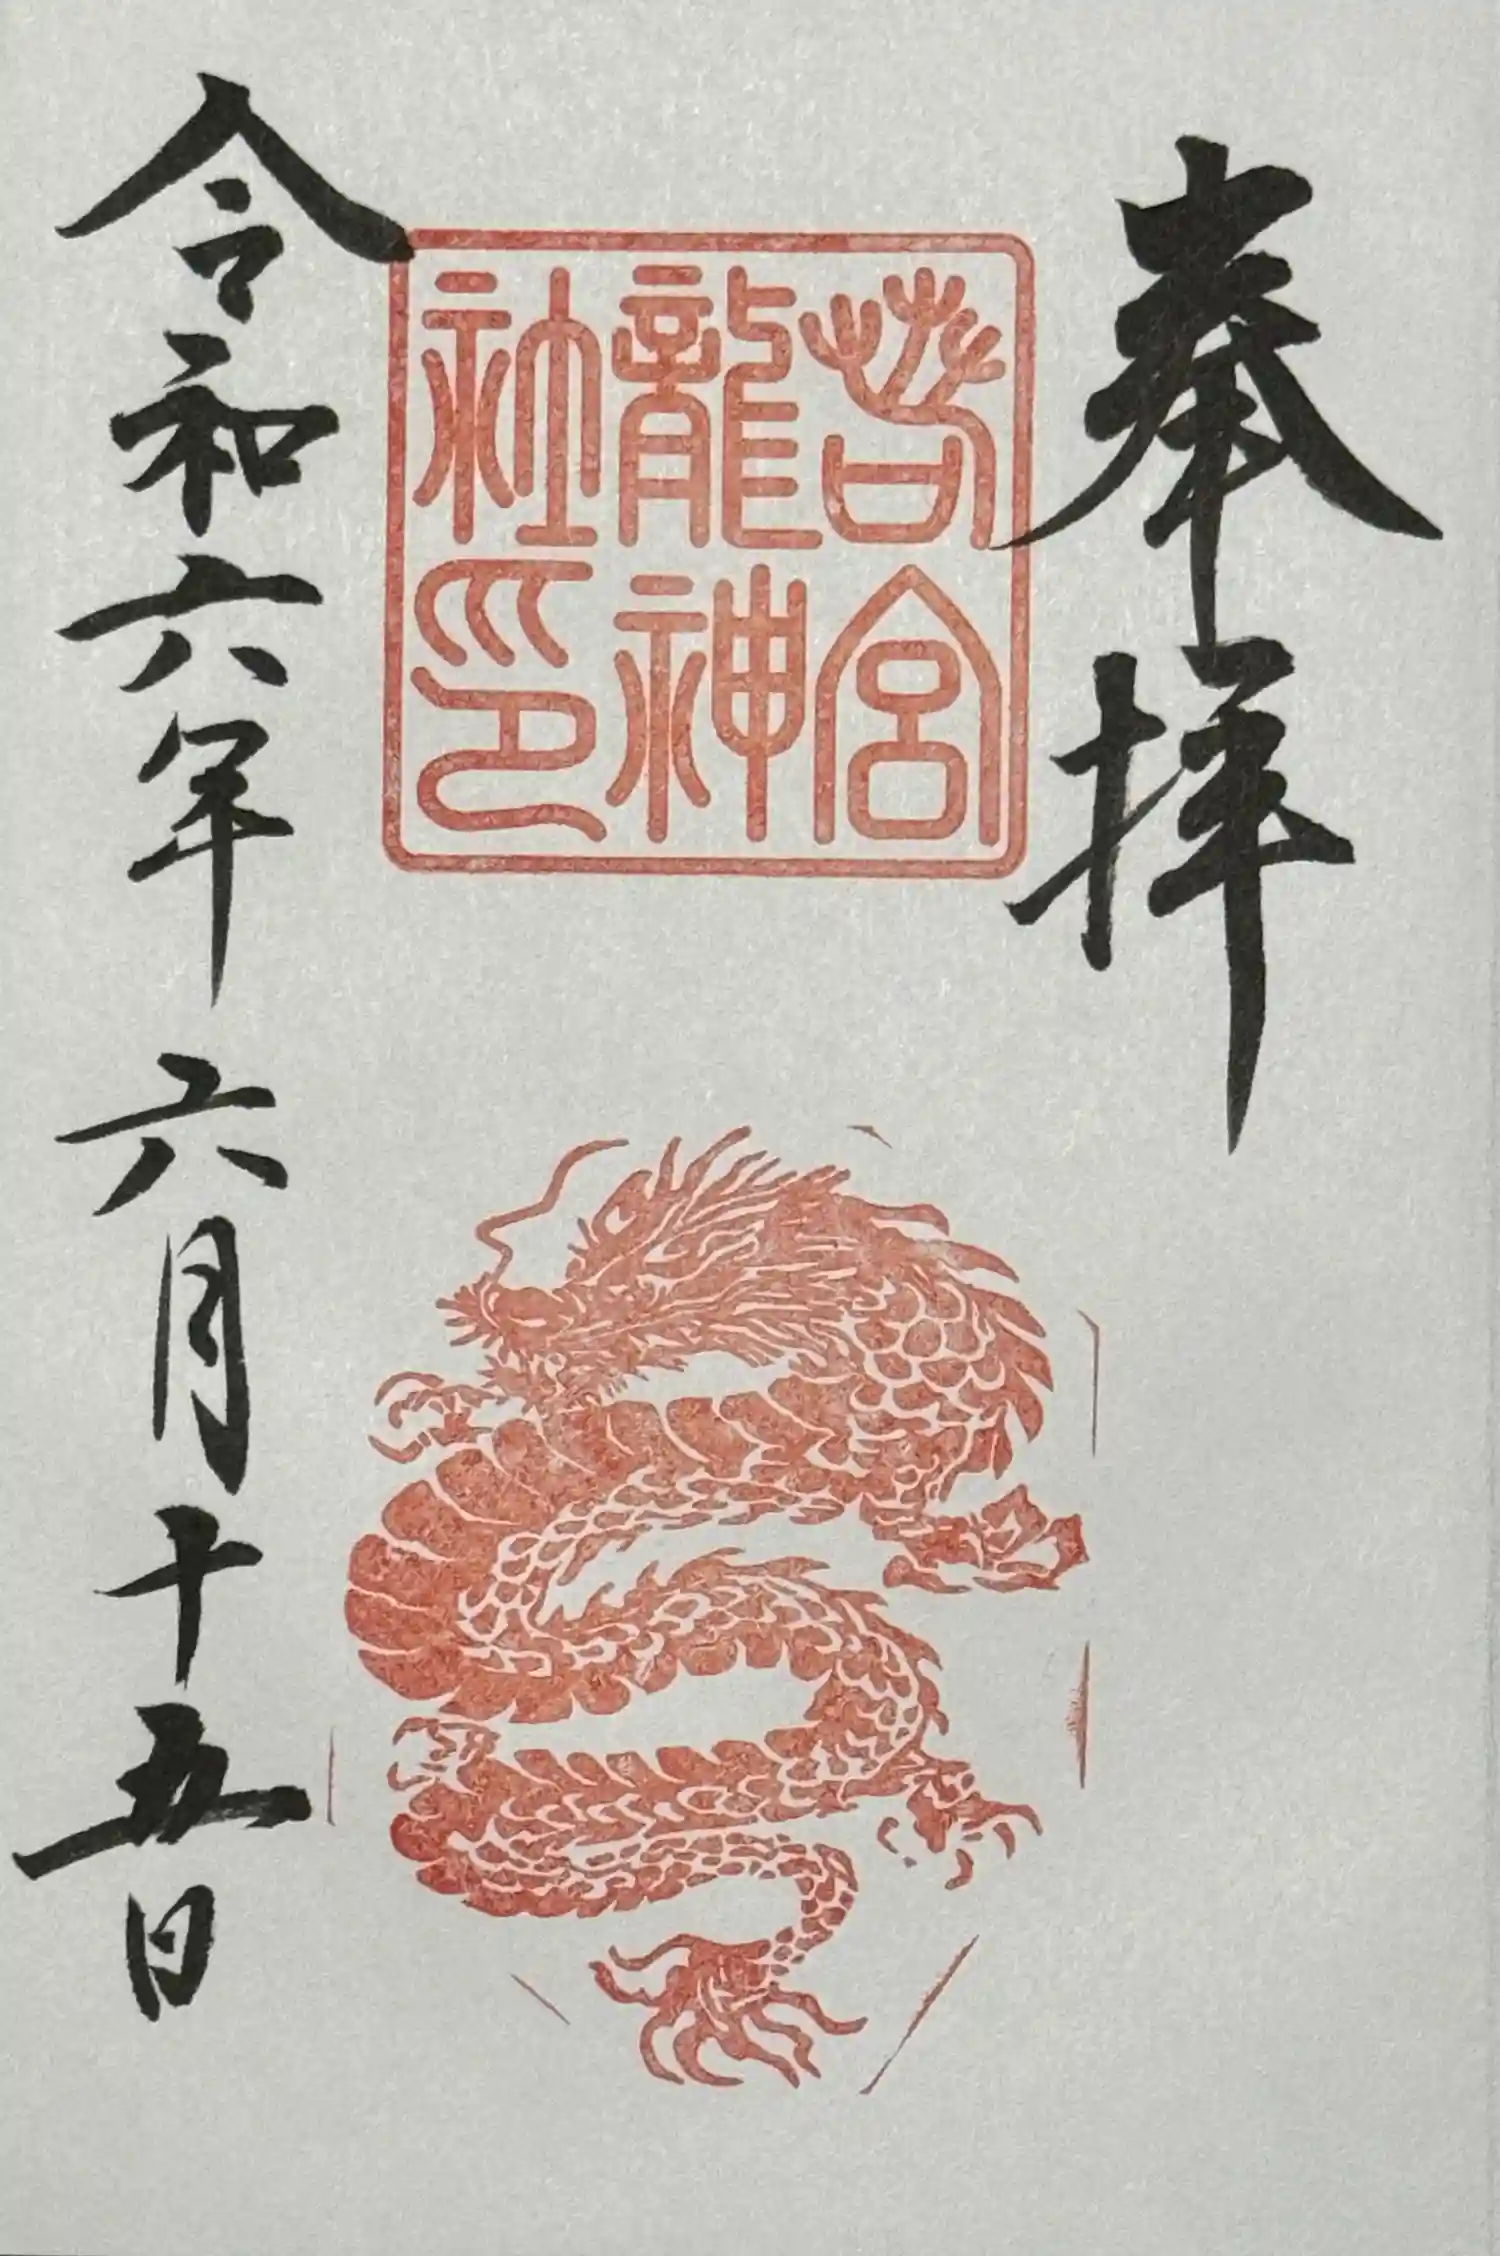 奉拝
若宮
龍神
社印
令和六年六月十五日